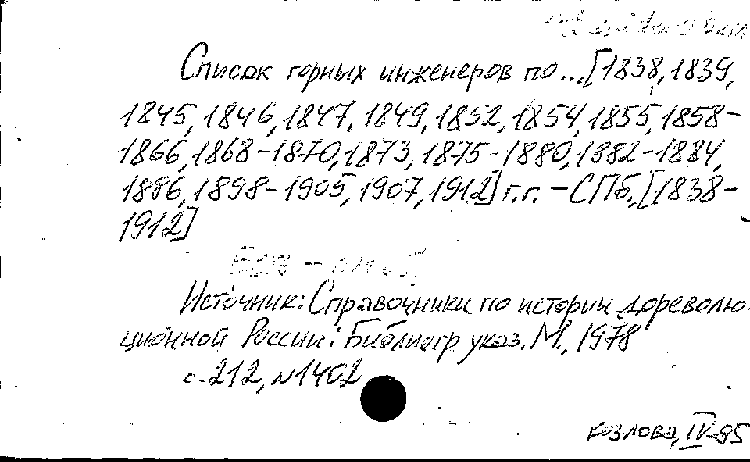 Список горных инженеров по...[1838, 1839,
1845, 1846, 1847, 1849, 1852, 1854, 1855, 1858-
1866, 1868-1870, 1873, 1875-1880, 1882-1884,
1886, 1898-1905, 1907, 1912] г.г. - СПб, [1838-
1912]
Источник: Справочники по истории дореволю
ционной России: Библиогр. указ. М., 1978
с. 212, №1402
Козлова, IV-85